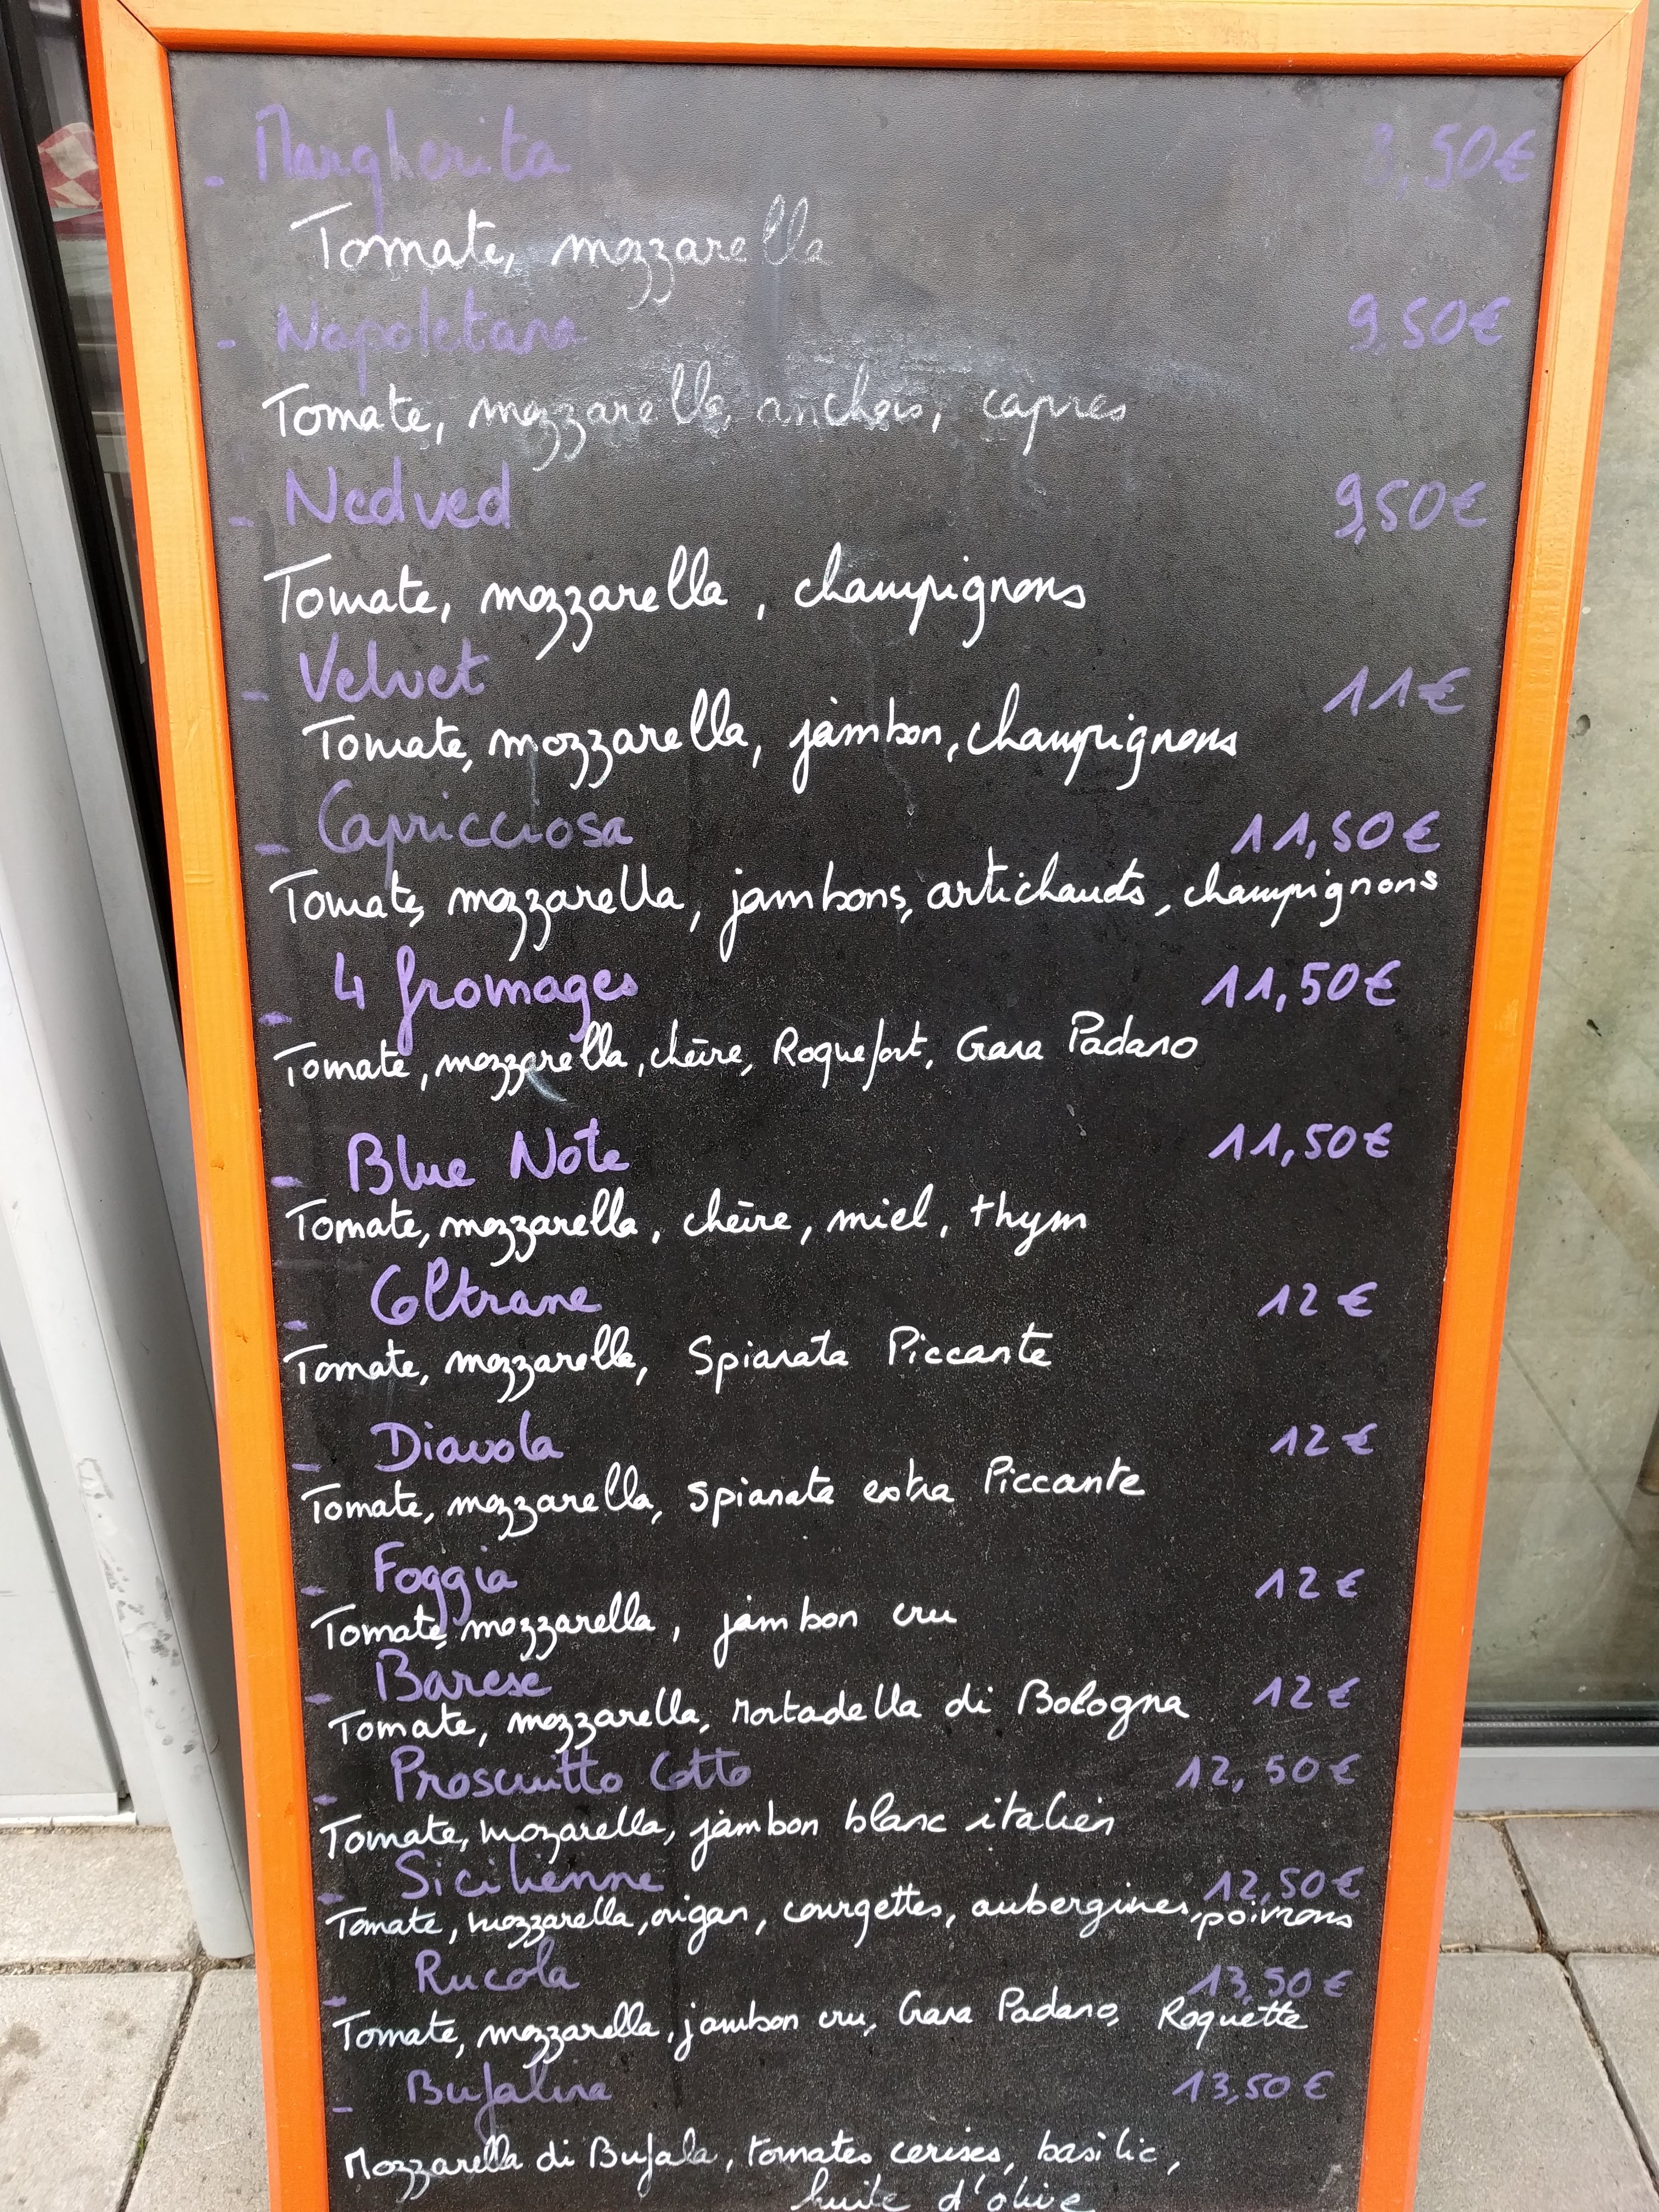 - Margherita 8,50€
Tomate, mozzarella
- Napoletana 9,50€
Tomate, mozzarella, anchois, capres
- Nedved 9,50€
Tomate, mozzarella, champignons
- Velvet 11€
Tomate, mozzarella, jambon, champignons
- Capricciosa 11,50€
Tomate, mozzarella, jambons, artichauts, champignons
- 4 fromages 11,50€
Tomate, mozzarella, chèvre, Roquefort, Grana Padano
- Blue Note 11,50€
Tomate, mozzarella, chèvre, miel, thym
- Coltrane 12€
Tomate, mozzarella, Spianata Piccante
- Diavola 12€
Tomate, mozzarella, spianata extra Piccante
- Foggia 12€
Tomate, mozzarella, jambon cru
- Barese 12€
Tomate, mozzarella, Mortadella di Bologna
- Prosciutto Cotto 12,50€
Tomate, mozarella, jambon blanc italien
- Sicilienne 12,50€
Tomate, mozzarella, origan, courgettes, aubergines, poivrons
- Rucola 13,50€
Tomate, mozzarella, jambon cru, Grana Padano, Roquette
- Bufalina 13,50€
Mozzarella di Bufala, tomates cerises, basilic,
huile d'olive